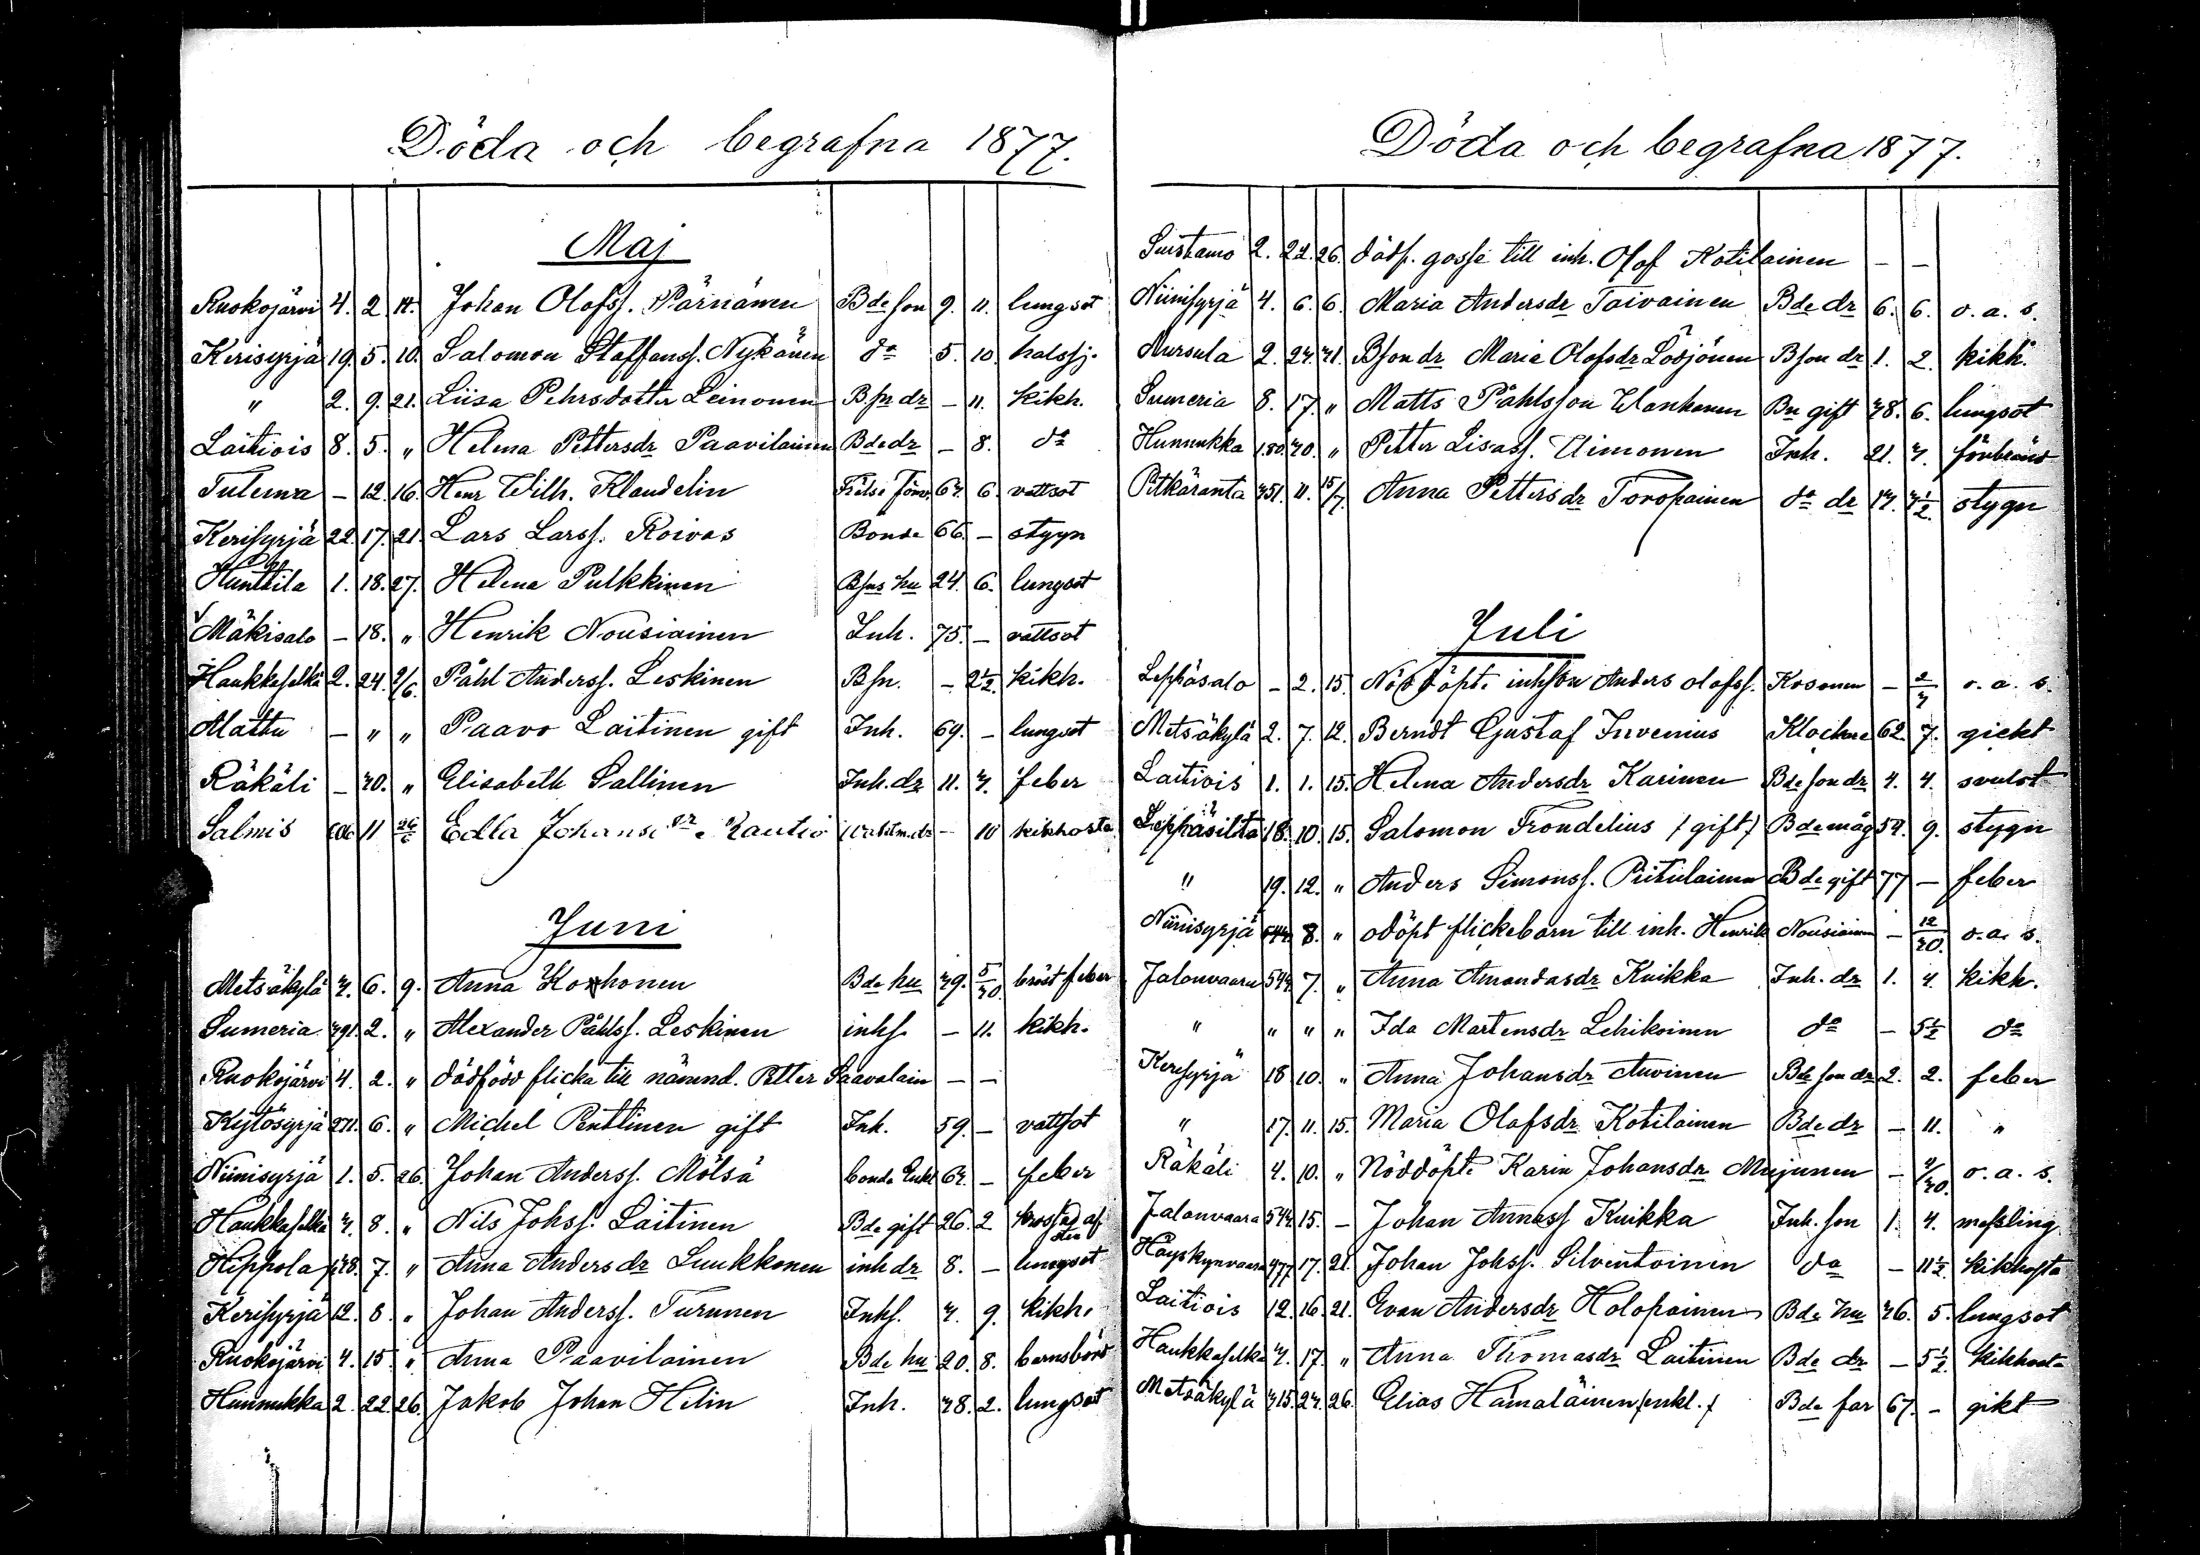 Döda och begrafna 1877.
Maj
Ruokojärvi 4. 2. 14. Johan Olofss. Pärnänen Bde son 9. 11. lungsot
Kerisyrjä 19. 5. 10. Salomon Staffanss. Nykänen do 5. 10. halssj.
" 2. 9. 21. Liisa Pehrsdotter Leinonen Bsn dr – 11. kikh.
Laitiois 8. 5. " Helena Pettersdr Paavilainen Bde dr – 8. do
Tulema – 12. 16. Henr Wilh. Klaudelin 6 vattsot
Kerisyrjä 22. 17. 21. Lars Larss. Roivas Bonde 66. – styng
Hunttila 1. 18. 27. Helena Pulkkinen Bsns hu 24. 6. lungsot
Mäkisalo – 18. " Henrik Nousiainen Inh. 75. – vattsot
Haukkaselkä 2. 24. 2/6. Påhl Anderss. Leskinen Bsn. – 2½ kikh.
Mattu – " " Paavo Laitinen gift Inh. 69. – lungsot
Räkäli – 30. " Elisabeth Sallinen Inh. dr 11. 3. feber
Salmis 11 Edla Johansdr Rautio – 10 kikhosta
Juni
Metsäkylä 3. 6. 9. Anna Korhonen Bde hu 39. 5/30. bröst feber
Sumeria 391. 2. " Alexander Påhlss. Leskinen inhs – 11. kikh.
Ruokojärvi 4. 2. " dödfödd flicka till nämnd. Petter Saavalain – –
Kytösyrjä 271. 6. " Michel Penttinen gift Inh. 59. – vattsot
Niinisyrjä 1. 5. 26. Johan Anderss. Mölsä bonde Enkl 63. – feber
Haukkaselkä 3. 8. " Nils Johss. Laitinen Bde gift 26. 2 krossad af
Hippola 7. " Anna Andersdr Luukkonen inh dr 8. – lungsot
Kerisyrjä 12. 8. " Johan Anderss. Turunen Inhs. 3. 9. kikh.
Ruokojärvi 4. 15. " Anna Paavilainen Bde hu 20. 8. barnsbörd
Hunnukka 2. 22. 26. Jakob Johan Hilin Inh. 38. 2. lungsot
Döda och begrafna 1877.
Suistamo 2. 22. 26. dödf. gosse till inh. Olof Kotilainen – –
Niinisyrjä 4. 6. 6. Maria Andersdr Toivainen Bde dr 6. 6. o. a. s.
Mursula 2. 23. 31. Bson dr Maria Olofsdr Lösjönen Bson dr 1. 2. kikh.
Sumeria 8. 17. " Matts Påhlsson Wanhanen Bn gift 38. 6. lungsot
Hunnukka 180. 30. " Petter Lisass. Uimonen Inh. 21. 3. förbränd
Pitkäranta 351. 11. 15/7. Anna Pettersdr Toropainen do dr 13. 3½ stygn
Juli
Leppäsalo – 2. 15. Nöddöpte inhson Anders Olofss. Kosonen – o. a. s.
Metsäkylä 2. 7. 12. Berndt Gustaf Juvenius Klockare 62. 7. gickt
Laitiois 1. 1. 15. Helena Andersdr Karinen Bde son dr 4. 4. svulst
Leppäsilta 18. 10. 15. Salomon Frondelius /gift/ Bde måg 54. 9. stygn
" 19. 12. " Anders Simonss. Piitulainen Bde gift 77 – feber
Niinisyrjä 8. " odöpt flickebarn till inh. Henrik Nousiainen – 12/30. o. a. s.
Jalonvaara 543 7. " Anna Amandasdr Kuikka Inh. dr 1. 4. kikh.
" " " " Ida Martensdr Lehikoinen do – 5½ do
Kerisyrjä 18 10. " Anna Johansdr Auvinen Bde son dr 2. 2. feber
" 17. 11. 15. Maria Olofsdr Kotilainen Bde dr – 11. "
Räkäli 4. 10. " Nöddöpte Karin Johansdr Mujunen – o. a. s.
Jalonvaara 543 15. – Johan Annass Kuikka Inh. son 1. 4. messling
977 17. 21. Johan Johss. Silventoinen do – 11½ kikhosta
Laitiois 12. 16. 21. Evan Andersdr Holopainen Bde hu 36. 5. lungsot
Haukkaselkä 3. 17. " Anna Thomasdr Laitinen Bde dr – 5½ kikhosta
Metsäkylä 315. 23. 26. Elias Hämäläinen /enkl./ Bde far 67. – gikt